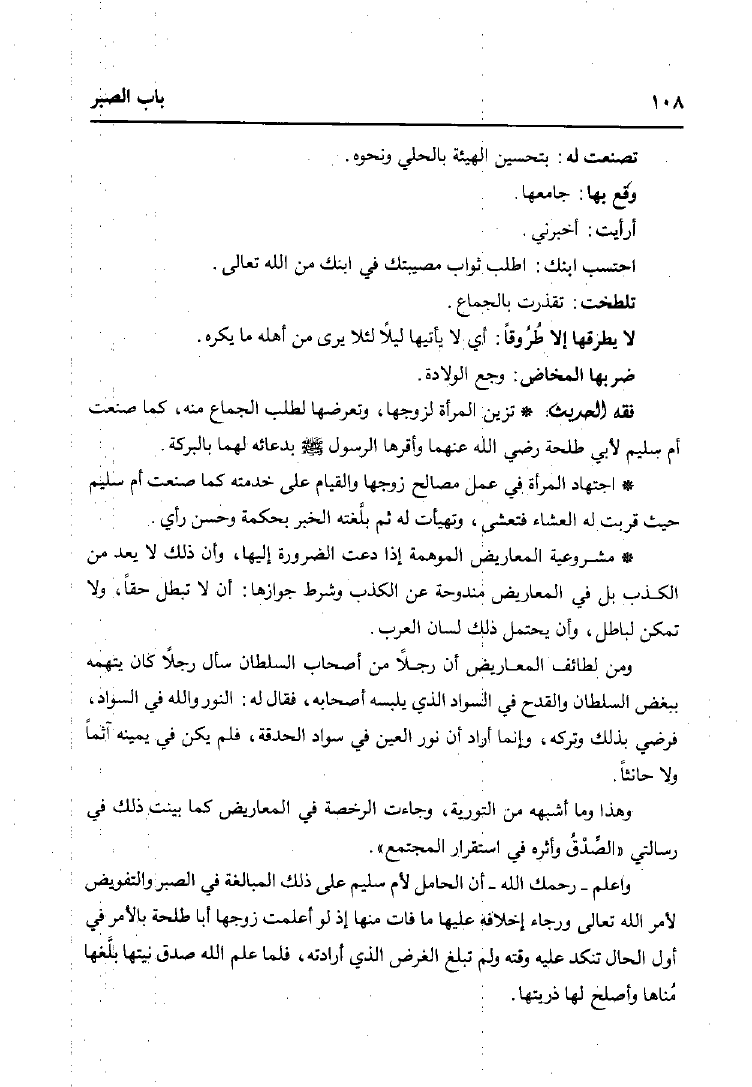 ١٠٨ باب الصبر
تصنعت له: بتحسين الهيئة بالحلي ونحوه.
وقع بها: جامعها.
أرأيت: أخبرني.
احتسب ابنك: اطلب ثواب مصيبتك في ابنك من الله تعالى.
تلطخت: تقذرت بالجماع.
لا يطرقها إلا طُرُوقاً: أي لا يأتيها ليلًا لئلا يرى من أهله ما يكره.
ضربها المخاض: وجع الولادة.
فقه الحديث: * تزين المرأة لزوجها، وتعرضها لطلب الجماع منه، كما صنعت
أم سليم لأبي طلحة رضي الله عنهما وأقرها الرسول ﷺ بدعائه لهما بالبركة.
* اجتهاد المرأة في عمل مصالح زوجها والقيام على خدمته كما صنعت أم سليم
حيث قربت له العشاء فتعشى، وتهيأت له ثم بلَّغته الخبر بحكمة وحسن رأي.
* مشروعية المعاريض الموهمة إذا دعت الضرورة إليها، وأن ذلك لا يعد من
الكذب بل في المعاريض مندوحة عن الكذب وشرط جوازها: أن لا تبطل حقاً، ولا
تمكن لباطل، وأن يحتمل ذلك لسان العرب.
ومن لطائف المعاريض أن رجلًا من أصحاب السلطان سأل رجلًا كان يتهمه
ببغض السلطان والقدح في السواد الذي يلبسه أصحابه، فقال له: النور والله في السواد،
فرضي بذلك وتركه، وإنما أراد أن نور العين في سواد الحدقة، فلم يكن في يمينه آثماً
ولا حانثاً.
وهذا وما أشبهه من التورية، وجاءت الرخصة في المعاريض كما بينت ذلك في
رسالتي «الصِّدْقُ وأثره في استقرار المجتمع».
واعلم ـ رحمك الله ـ أن الحامل لأم سليم على ذلك المبالغة في الصبر والتفويض
لأمر الله تعالى ورجاء إخلافه عليها ما فات منها إذ لو أعلمت زوجها أبا طلحة بالأمر في
أول الحال تنكد عليه وقته ولم تبلغ الغرض الذي أرادته، فلما علم الله صدق نيتها بلَّغها
مُناها وأصلح لها ذريتها.